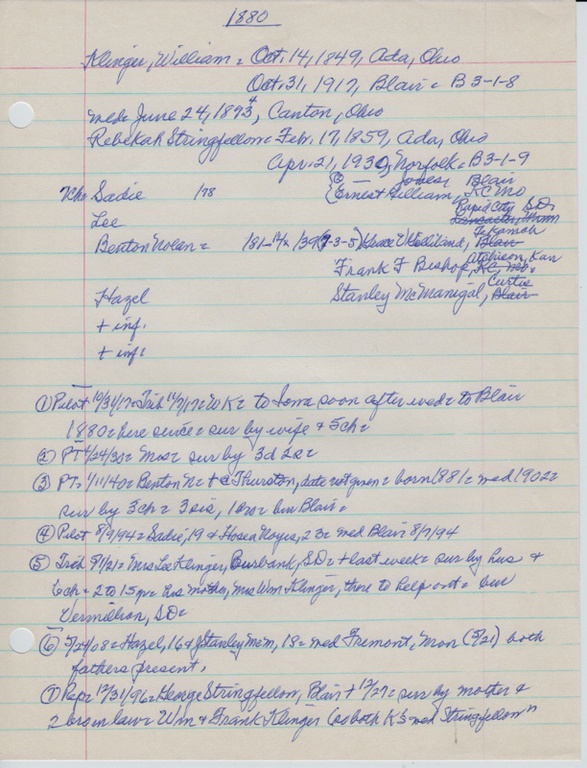 1880
Klinger, William = Oct. 14, 1849, Ada, Ohio
Oct. 31, 1917, Blair = B 3-1-8
med = June 24, 1873 4, Canton, Ohio
Rebekah Stringfellow = Feb. 17, 1859, Ada, Ohio
Apr. 21, 1930, Norfolk = B3-1-9
Jones, Blair
7ch = Sadie 178 Ernest Gilliam, KC Mo
Rapid City SD
Lee Lancaster,
Tekamah
Benton Nolan = 181- /39 (7-3-5) Blair
Atchison, Kan
Frank F Bishop, KC, Mo =
Curtis
Hazel Stanley McManigal, Blair
+ inf.
+ inf.
① Pilot 10/31/17 = Trib 11/7/17 = WK = to Iowa soon after wed = to Blair
1880 = here since = sur by wife + 5ch =
② PT 4/24/30 = Mos = sur by 3d 2s =
③ PT = 1/11/40 = Benton N = + @ Thurston, date not given = born 1881 = med 1902 =
sur by 3ch = 3 sis, 1 bro = bur Blair =
④ Pilot 8/9/94 = Sadie, 19 & Hosea Noyes, 23 = med Blair 8/7/94
⑤ Trib 9/1/21 = Mrs Lee Klinger, Burbank, SD = + last week = sur by hus &
6ch = 2 to 15 yr = his mother, Mrs Wm Klinger, there to help out = bur
Vermillion, SD =
⑥ 5/24/08 = Hazel, 16 & Stanley McM, 18 = med Fremont, Mon (5/21) both
fathers present.
⑦ Rep = 12/31/96 = George Stringfellow, Blair + 12/27 = sur by mother &
2 bro in law = Wm & Frank Klinger (so both K's med Stringfellow